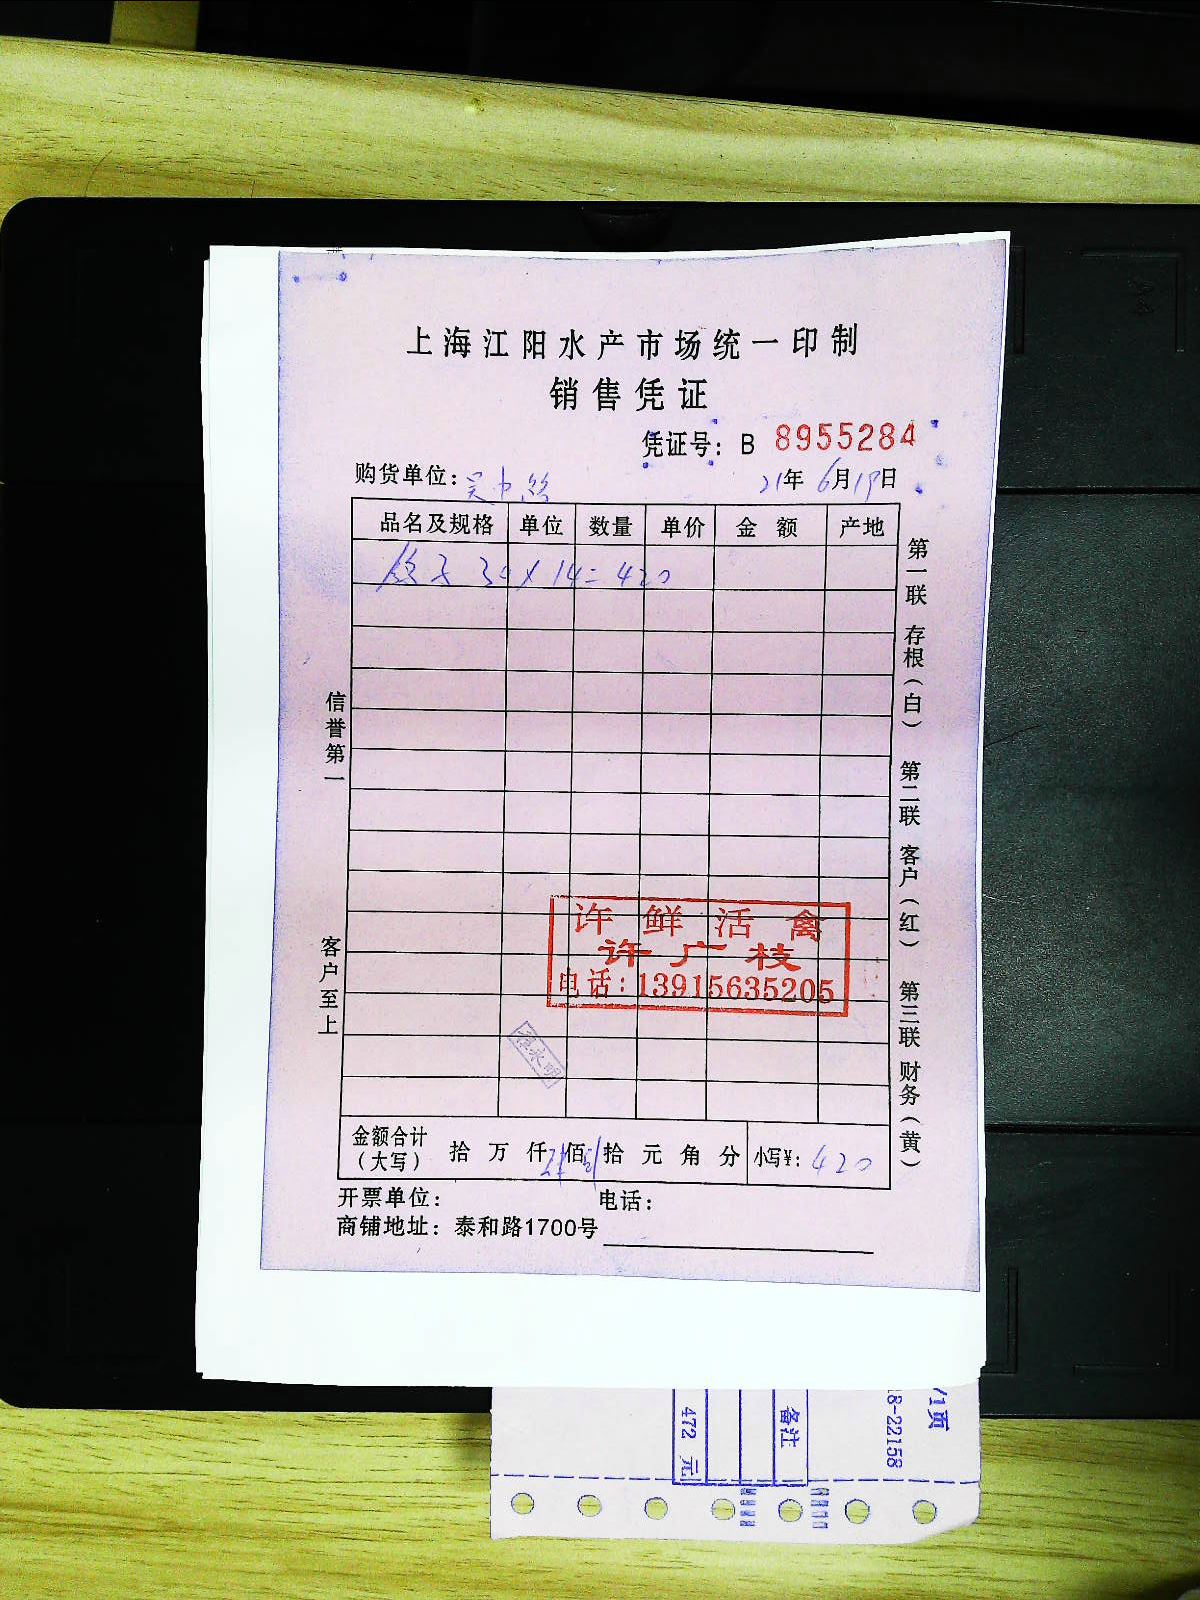 上海江阳水产市场统一印制
销售凭证
凭证号：B 8955284
购货单位：
21年6月19日
品名及规格 单位 数量 单价 金额 产地
鸽子 30×14=420
信誉第一
客户至上
第一联 存根（白） 第二联 客户（红） 第三联 财务（黄）
许鲜活禽
许广枝
电话：13915635205
金额合计（大写） 拾 万 仟 佰 拾 元 角 分 小写¥：420
开票单位： 电话：
商铺地址：泰和路1700号
/1页
18-22158
备注
472 元